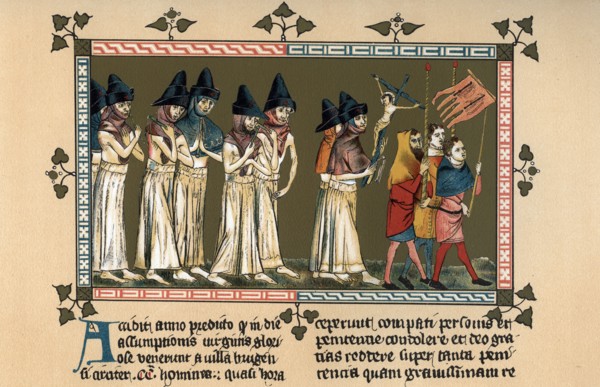 Accidit anno predicto q in die
assumptionis virginis glori
ose venerunt a villa brugen
si .CC. homines: quasi hora
ceperunt compati personis et
penitentie condolere et deo gra
tias reddere super tanta peni
tencia quam gravissimam re